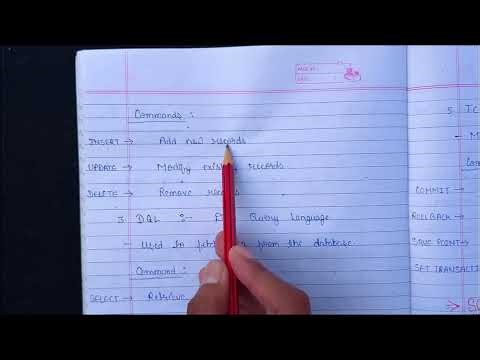 Commands :
INSERT → Add new records
UPDATE → Modify records
DELETE → Remove
3. DQL :- Query Language
- Used to from the database.
Command :
SELECT → Retrieve
5. TC
- M
Co
COMMIT →
ROLLBACK →
SAVE POINT →
SET TRANSACTI